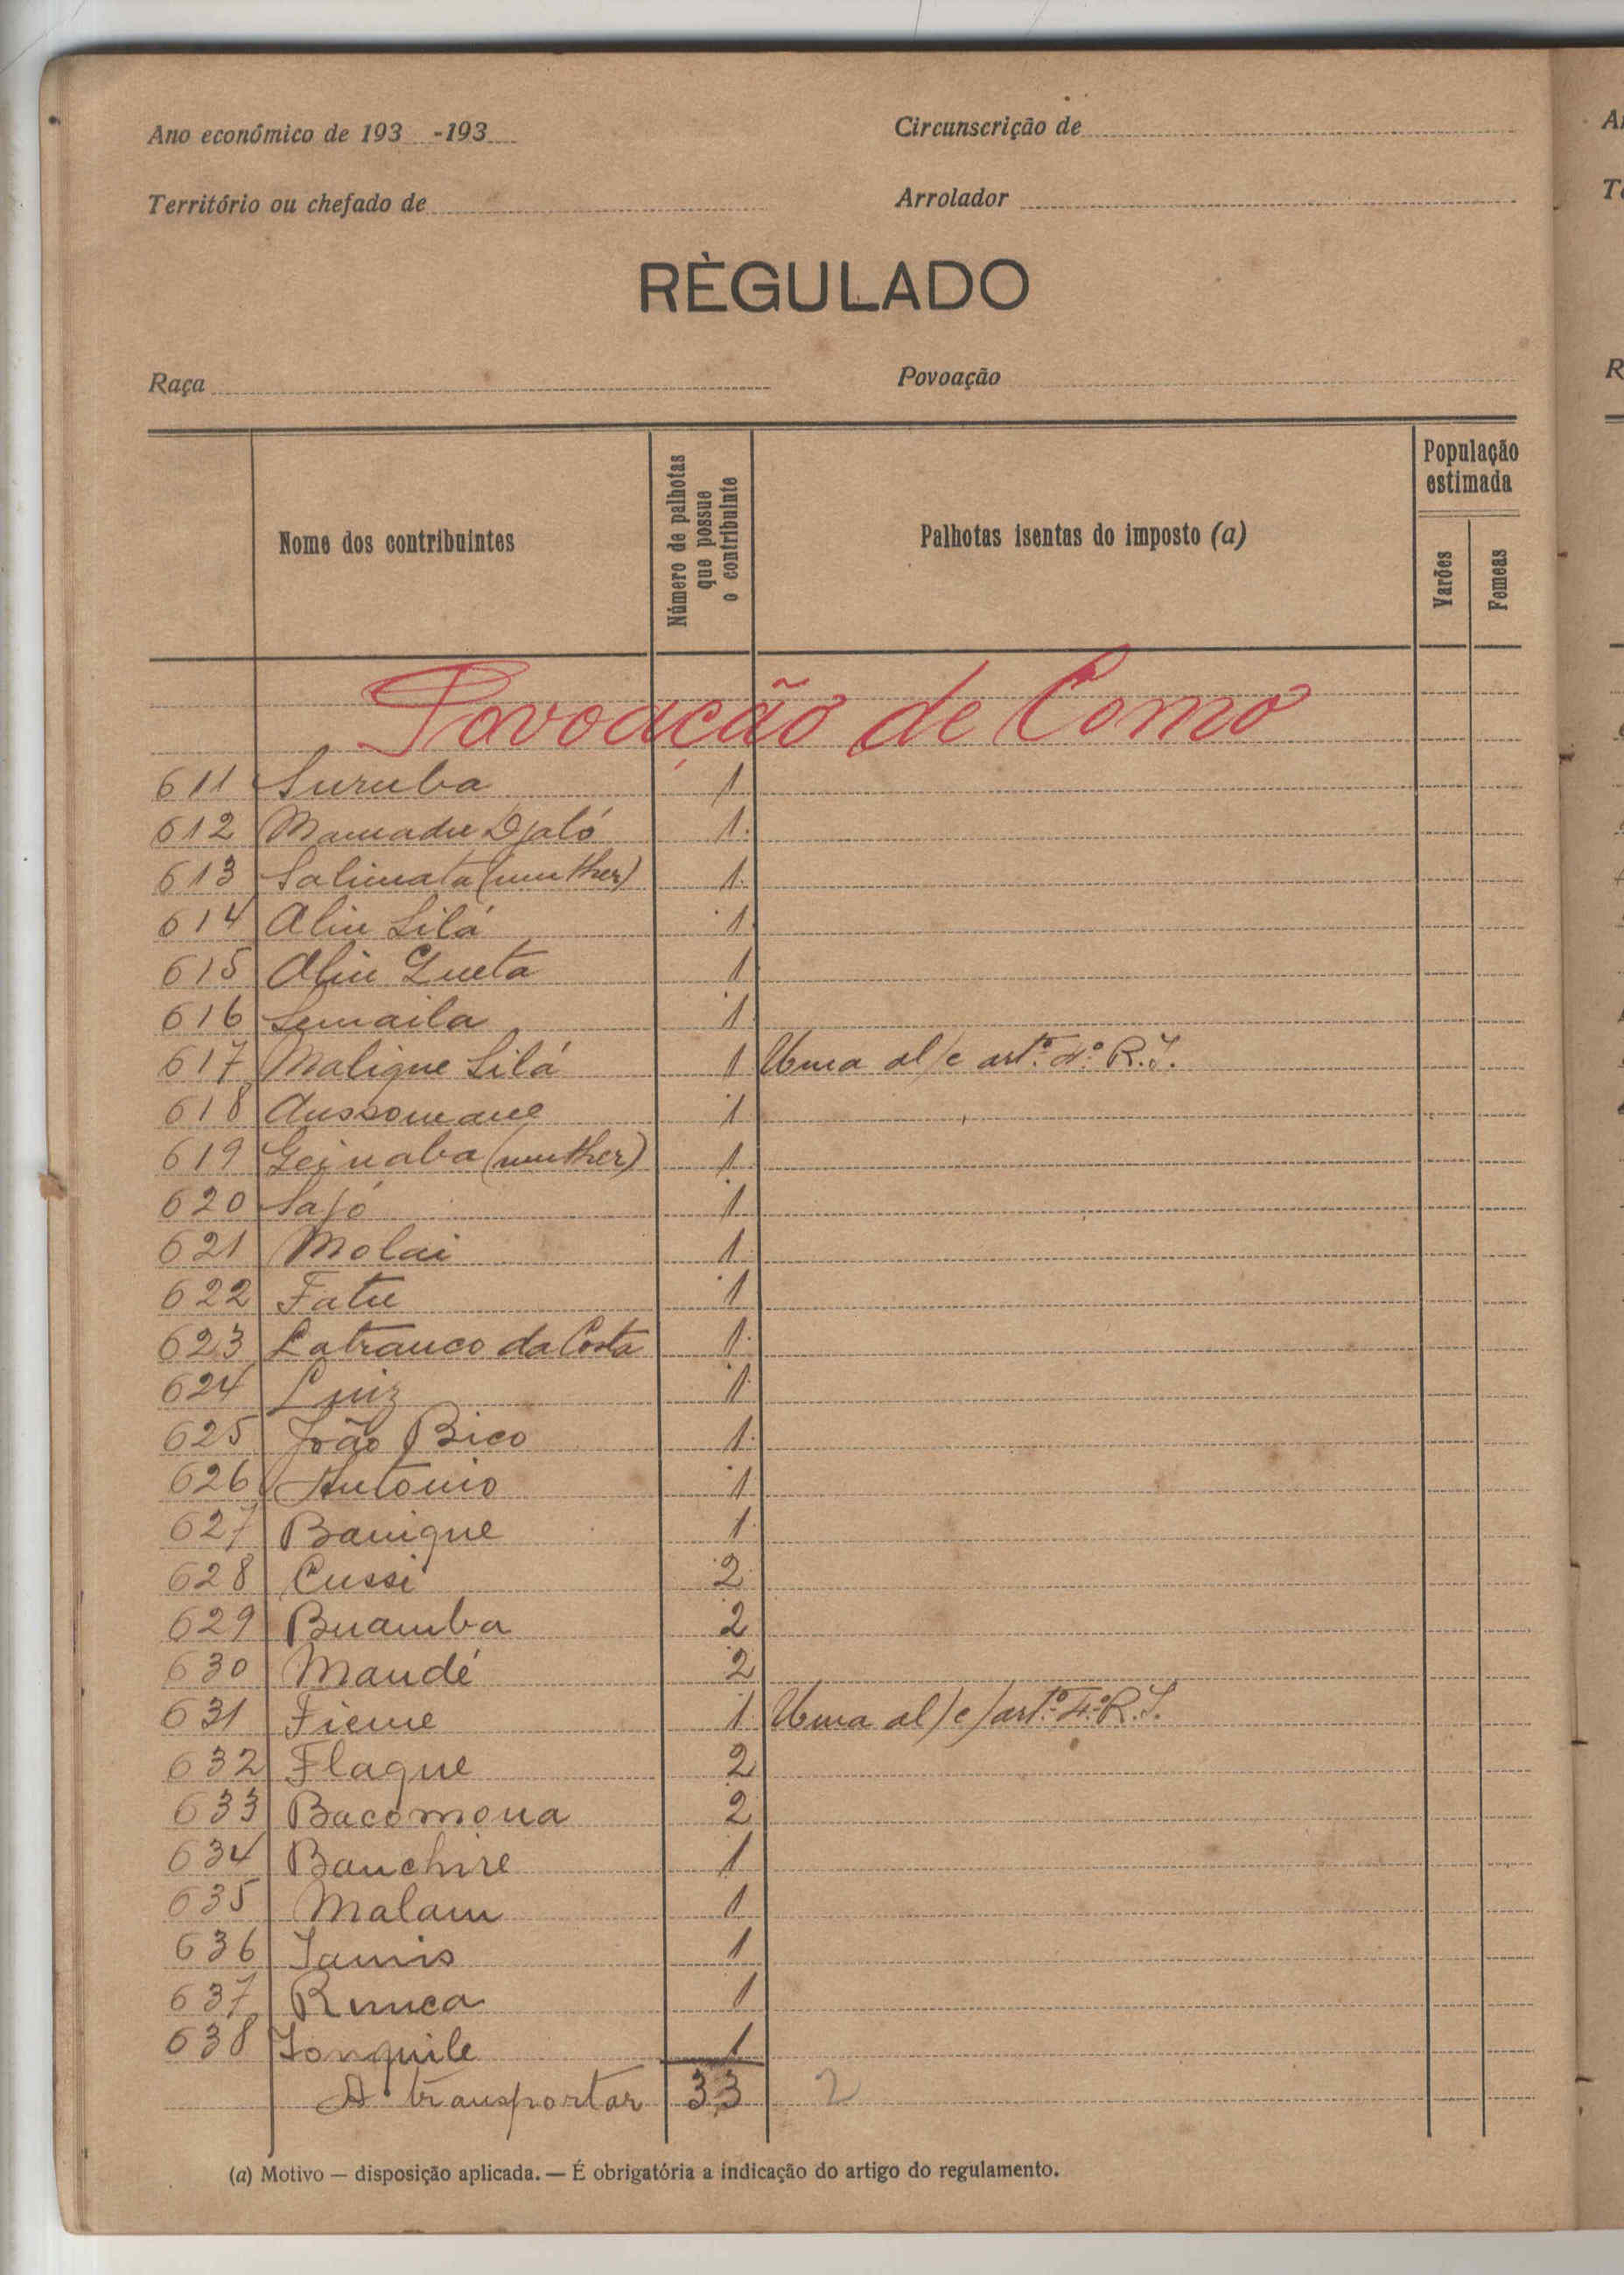 Ano económico de 193 -193
Circunscrição de
Território ou chefado de
Arrolador
RÈGULADO
Raça
Povoação
Nome dos contribuintes
Número de palhotas que possue o contribuinte
Palhotas isentas do imposto (a)
População estimada
Varões
Femeas
Povoação de Como
611 Suruba 1
612 Mamadu Djaló 1
613 Salimata (mulher) 1
614 Aliu Silá 1
615 Aliu Queta 1
616 Semaila 1
617 Malique Silá 1 Uma al/c artº 4º R.I.
618 Aussomane 1
619 Geinaba (mulher) 1
620 Safó 1
621 Molai 1
622 Fatu 1
623 Latranco da Costa 1
624 Luiz 1
625 João Bico 1
626 António 1
627 Banique 1
628 Cussi 2
629 Buamba 2
630 Mandé 2
631 Fieme 1 Uma al/c/artº 4º R.I.
632 Flaque 2
633 Bacomona 2
634 Banchire 1
635 Malam 1
636 1
637 1
638 1
A transportar 33 2
(a) Motivo — disposição aplicada. — É obrigatória a indicação do artigo do regulamento.